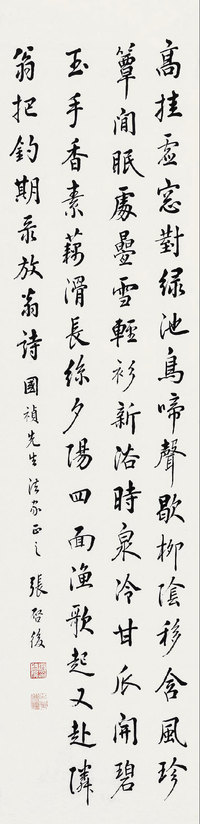 高挂虛窓對緑池鳥啼聲歇柳陰移含風珍
簟閒眠處疊雪輕衫新浴時泉冷甘瓜開碧
玉手香素藕滑長絲夕陽四面漁歌起又赴隣
翁把釣期录放翁詩 國禎先生法家正之 張啓後